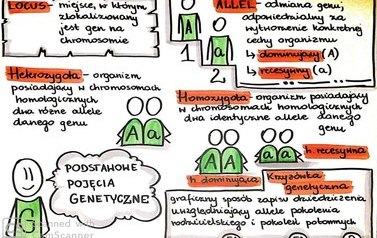 LOCUS - miejsce, w którym
zlokalizowany
jest gen na
chromosomie
A
a
1
2.
ALLEL - odmiana genu;
odpowiedzialny za
wytworzenie konkretnej
cechy organizmu
↳ dominujący (A)
↳ recesywny (a)
Heterozygota - organizm
posiadający w chromosomach
homologicznych
dwa różne allele
danego genu
A a
Homozygota - organizm posiadający
w chromosomach homologicznych
dwa identyczne allele danego
genu
A A
a a
h. recesywna
h. dominująca
G
PODSTAWOWE
POJĘCIA
GENETYCZNE
Krzyżówka
genetyczna
graficzny sposób zapisu dziedziczenia
uwzględniający allele pokolenia
rodzicielskiego i pokoleń potomnych
Scanned with
CamScanner